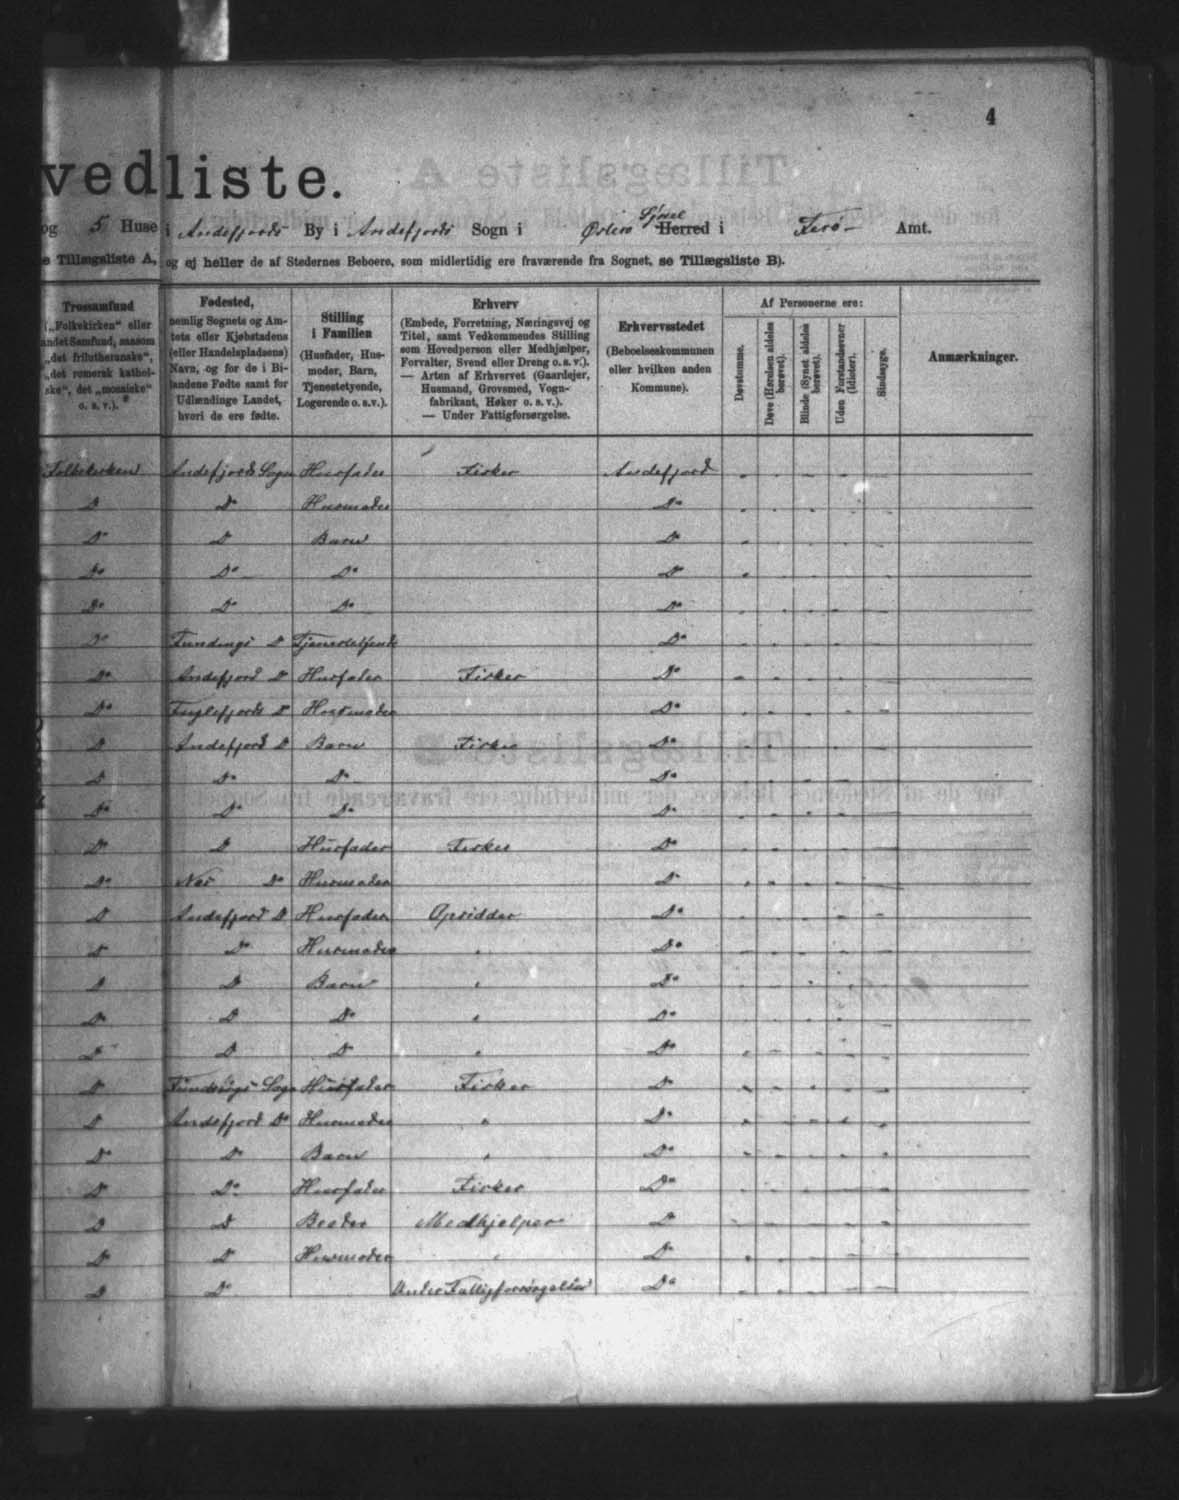 4
vedliste.
og 5 Huse i Andefjords By i Andefjords Sogn i Østerø Sysel Herred i Færø Amt.
e Tillægsliste A, og ej heller de af Stedernes Beboere, som midlertidig ere fraværende fra Sognet, se Tillægsliste B).
Trossamfund
(„Folkekirken“ eller
andet Samfund, saasom
„det frilutheranske“,
„det romersk kathol-
ske“, det „mosaiske“
o. s. v.).
Fødested,
nemlig Sognets og Am-
tets eller Kjøbstadens
(eller Handelspladsens)
Navn, og for de i Bi-
landene Fødte samt for
Udlændinge Landet,
hvori de ere fødte.
Stilling
i Familien
(Husfader, Hus-
moder, Barn,
Tjenestetyende,
Logerende o. s. v.).
Erhverv
(Embede, Forretning, Næringsvej og
Titel, samt Vedkommendes Stilling
som Hovedperson eller Medhjælper,
Forvalter, Svend eller Dreng o. s. v.).
— Arten af Erhvervet (Gaardejer,
Husmand, Grovsmed, Vogn-
fabrikant, Høker o. s. v.).
— Under Fattigforsørgelse.
Erhvervsstedet
(Beboelseskommunen
eller hvilken anden
Kommune).
Af Personerne ere:
Døvstumme.
Døve (Hørelsen aldeles
berøvet).
Blinde (Synet aldeles
berøvet).
Uden Forstandsevner
(Idioter).
Sindssyge.
Anmærkninger.
Folkekirken Andefjords Sogn Husfader Fisker Andefjord
Do Do Husmoder Do
Do Do Barn Do
Do Do Do Do
Do Do Do Do
Do Fundings Do Tjenestetyende Do
Do Andefjord Do Husfader Fisker Do
Do Fuglefjords Do Husmoder Do
Do Andefjord Do Barn Fisker Do
Do Do Do Do
Do Do Do Do
Do Do Husfader Fisker Do
Do Nes Do Husmoder Do
Do Andefjord Do Husfader Opsidder Do
Do Do Husmoder " Do
Do Do Barn " Do
Do Do Do " Do
Do Do Do " Do
Do Fundings Sogn Husfader Fisker Do
Do Andefjord Do Husmoder " Do
Do Do Barn " Do
Do Do Husfader Fisker Do
Do Do Medhjelper Do
Do Do Husmoder " Do
Do Do Under Fattigforsørgelse Do